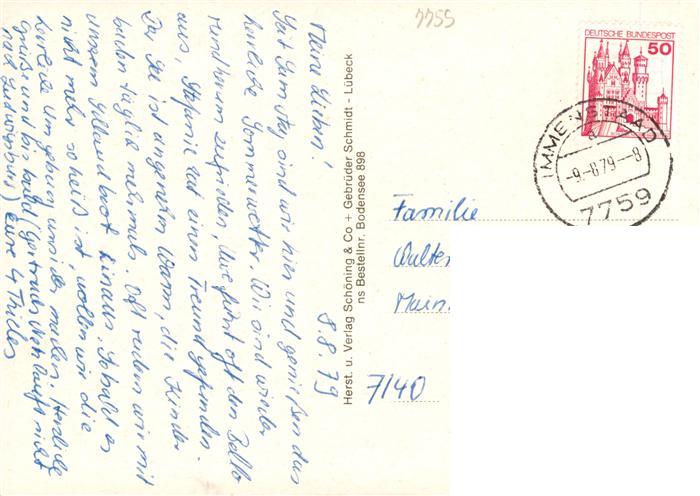 7755
DEUTSCHE BUNDESPOST
50
IMMENSTAAD
a
-9.-8.79--8
7759
8.8.79
Meine Lieben!
Seit Samstag sind wir hier und genießen das
herrliche Sommerwetter. Wir sind wieder
rundherum zufrieden. Uwe fährt oft den Ball
aus, Stefanie hat einen Freund gefunden.
Der See ist angenehm warm, die Kinder
baden täglich mehrmals. Oft rudern wir mit
unserem Gummiboot hinaus. Sobald es
nicht mehr so heiß ist, wollen wir die
herrliche Umgebung unsicher machen. Herzliche
Grüße und bis bald (Gertruds läuft nicht
nach Ludwigsburg) Eure 4 Thieles
Herst. u. Verlag Schöning & Co + Gebrüder Schmidt - Lübeck
ns Bestellnr. Bodensee 898
Familie
Walter
Main
7140